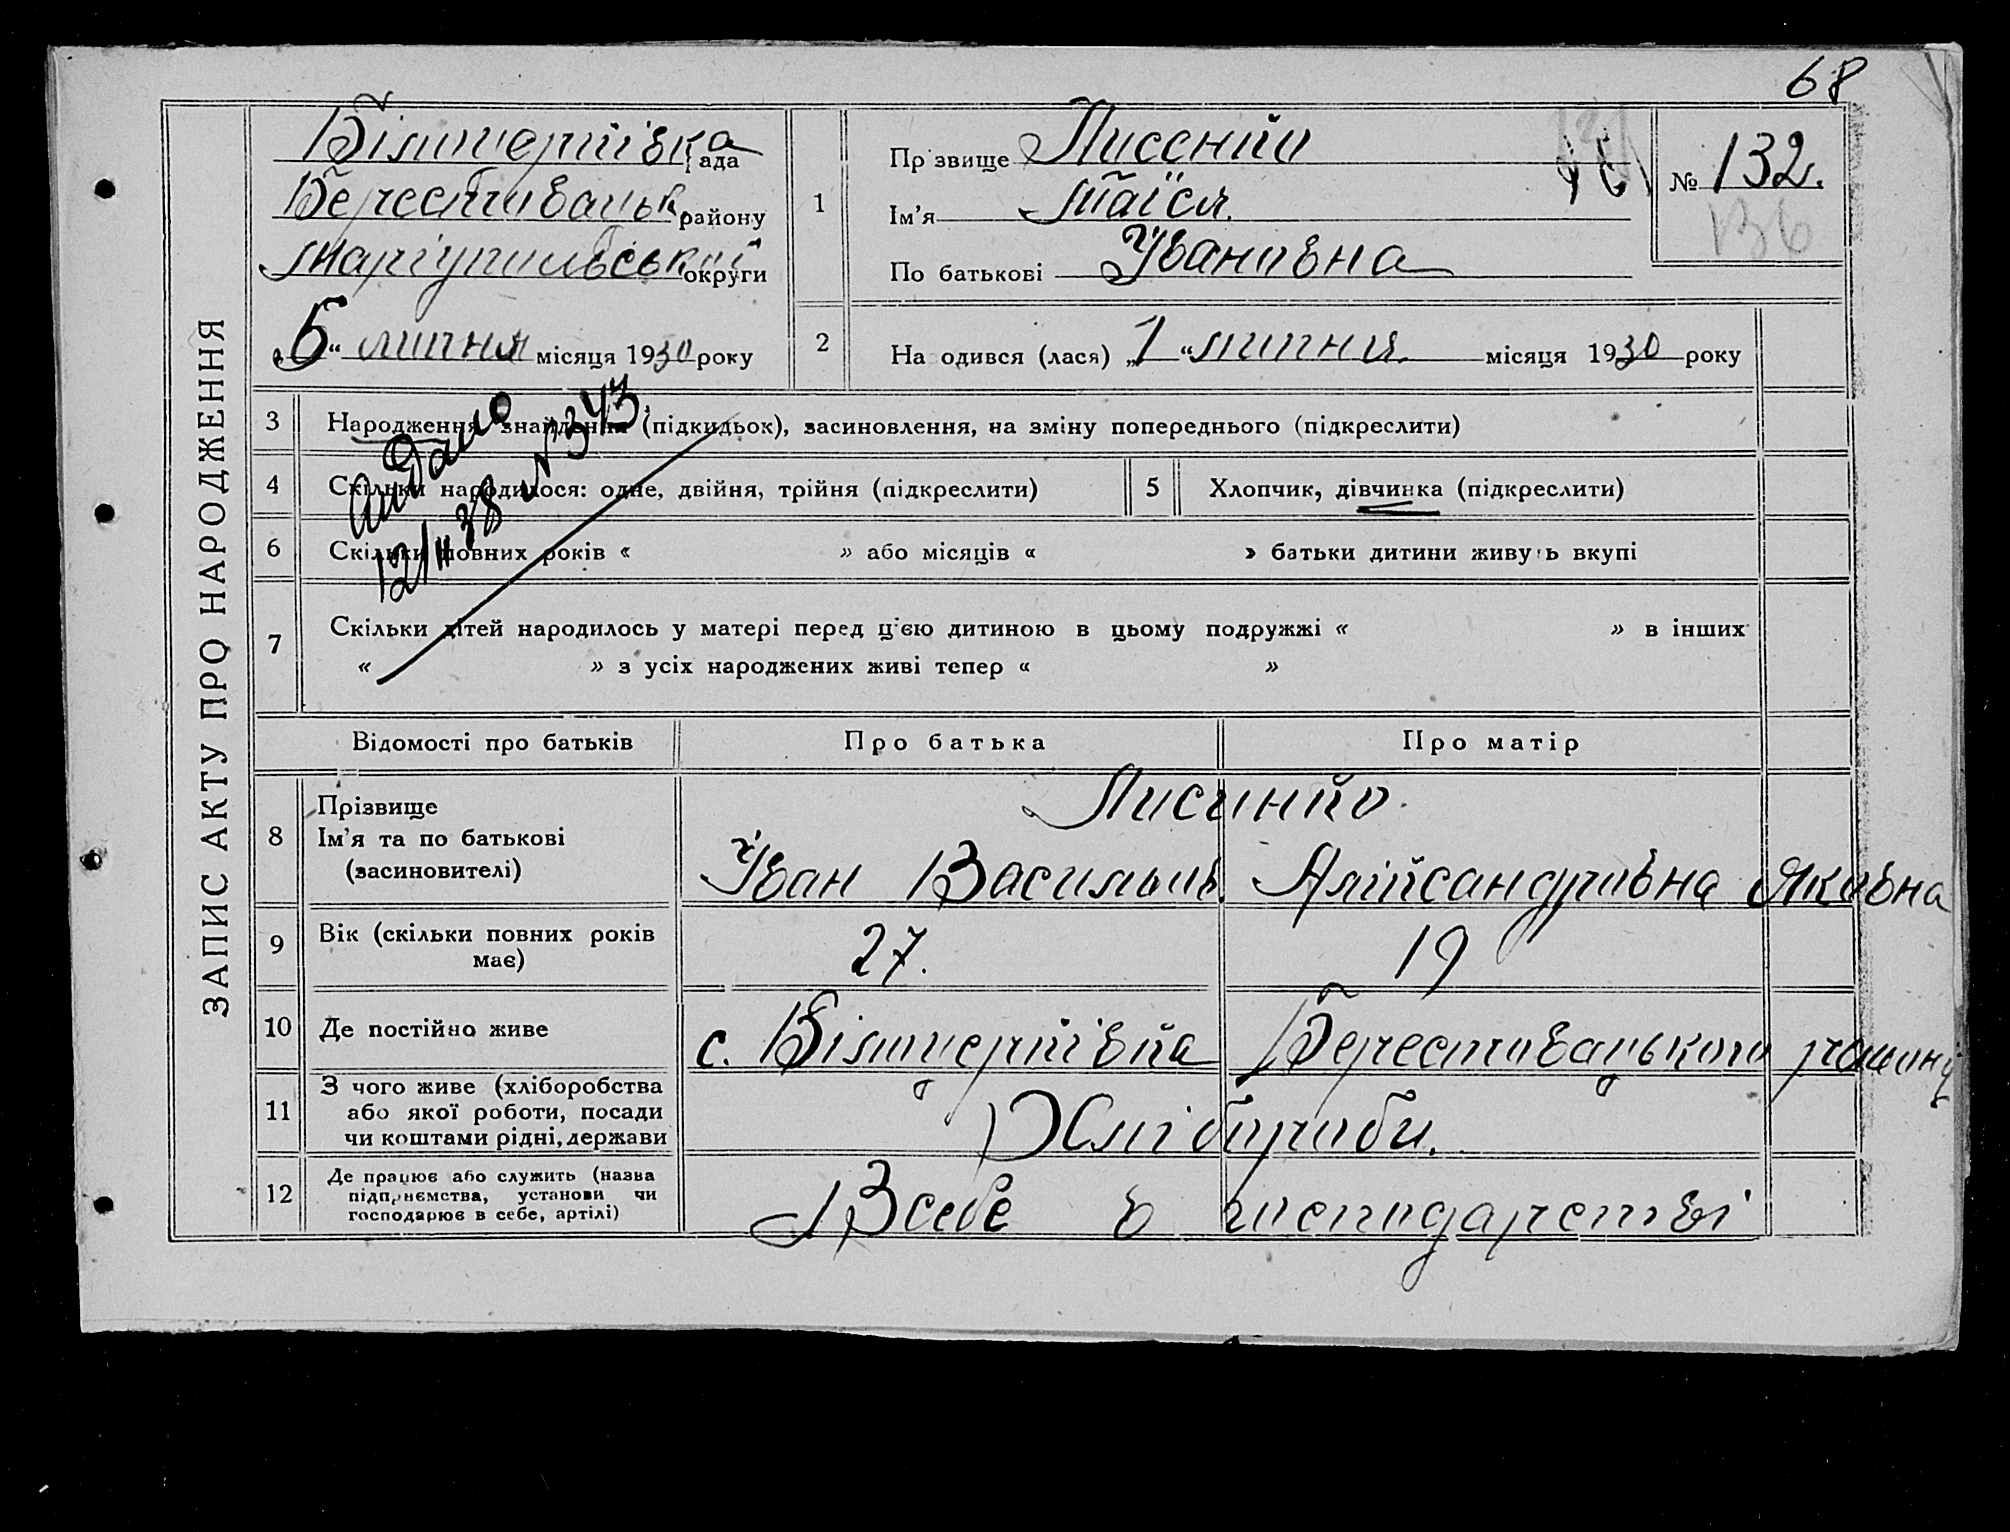 68
ЗАПИС АКТУ ПРО НАРОДЖЕННЯ
Білоцерківка рада
Берестивацьк. району
Маріупильської округи
„5“ липня місяця 1930 року
1
Прізвище Лисенко
Ім'я Таїся.
По батькові Іванивна
№ 132.
136
2
На одився (лася) „1“ липня місяця 1930 року
3 Народження знайдення (підкидьок), засиновлення, на зміну попереднього (підкреслити)
видано
12/II 38 № 343.
4 Скільки народилося: одне, двійня, трійня (підкреслити)
5 Хлопчик, дівчинка (підкреслити)
6 Скільки повних років « » або місяців « » батьки дитини живуть вкупі
7 Скільки дітей народилось у матері перед ц'єю дитиною в цьому подружжі « » в інших
« » з усіх народжених живі тепер « »
Відомості про батьків Про батька Про матір
8 Прізвище
Ім'я та по батькові
(засиновителі)
Лисинко.
Іван Васильов. Алісандривна Якивна
9 Вік (скільки повних років
має)
27. 19
10 Де постійно живе с. Білоцерківка Берестивацького району
11 З чого живе (хліборобства
або якої роботи, посади
чи коштами рідні, держави
Хлібороби.
12 Де працює або служить (назва
підприємства, установи чи
господарює в себе, артілі)
В себе в господарстві